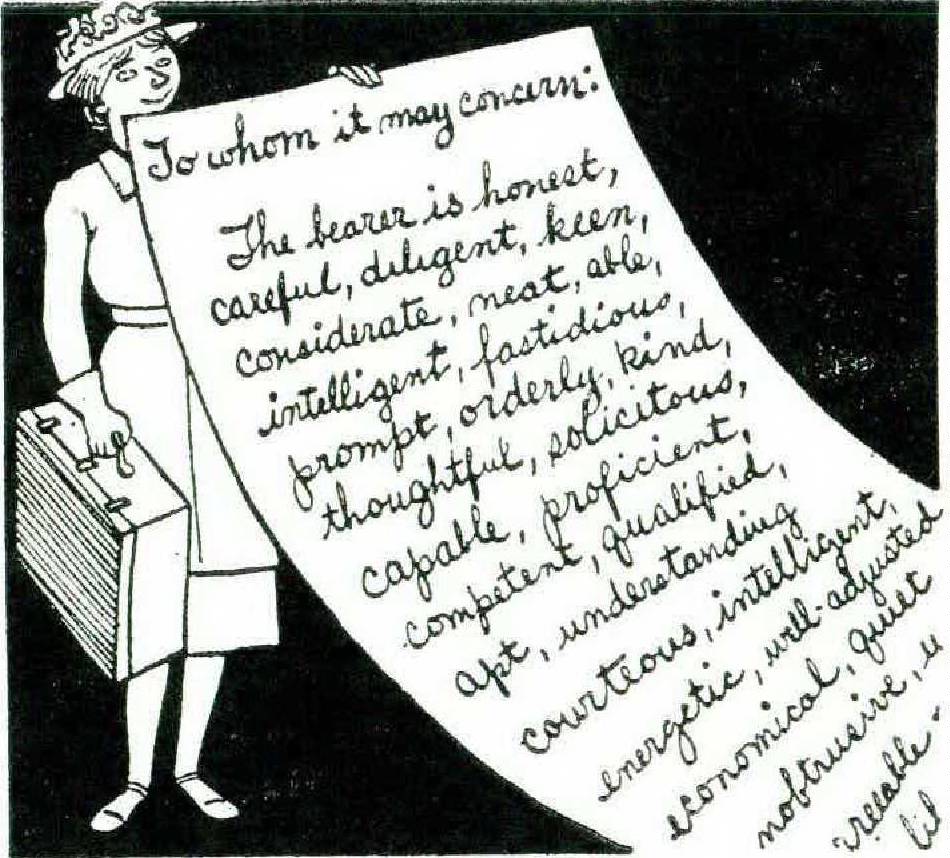 To whom it may concern:
The bearer is honest,
careful, diligent, keen,
considerate, neat, able,
intelligent, fastidious,
prompt, orderly, kind,
thoughtful, solicitous,
capable, proficient,
competent, qualified,
apt, understanding
courteous, intelligent,
energetic, well-adjusted
economical, quiet
nobtrusive, u